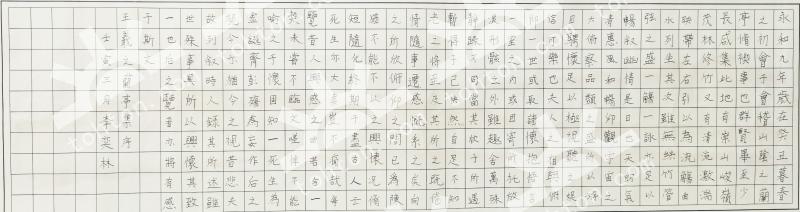 永和九年歲在癸丑暮春
之初會于會稽山陰之蘭
亭脩禊事也群賢畢至少
長咸集此地有崇山峻嶺
茂林修竹又有清流激湍
映帶左右引以為流觴曲
水列坐其次雖無絲竹管
弦之盛一觴一詠亦足以
暢叙幽情是日也天朗氣
清惠風和暢仰觀宇宙之
大俯察品類之盛所以遊
目騁懷足以極視聽之娛
信可樂也夫人之相與俯
仰一世或取諸懷抱悟言
一室之內或因寄所託放
浪形骸之外雖趣舍萬殊
靜躁不同當其欣於所遇
暫得於己快然自足不知
老之將至及其所之既倦
情隨事遷感慨係之矣向
之所欣俯仰之間已為陳
迹不能不以之興懷況修
短隨化終期於盡古人云
死生亦大矣豈不痛哉每
覽昔人興感之由若合一
契未嘗不臨文嗟悼不能
喻之於懷固知一死生為
虛誕齊彭殤為妄作后之
視今亦由今之視昔悲夫
故列叙時人錄其所述雖
世殊事異所以興懷其致
一也后之覽者亦將有感
于斯文
王羲之蘭亭集序
壬寅三月李奕林